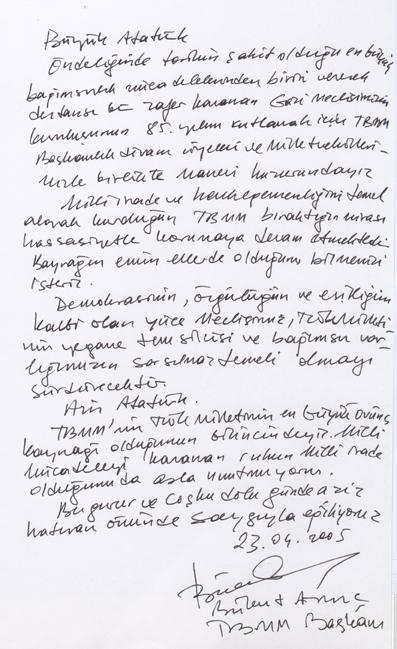 Büyük Atatürk
Önderliğinde tarihin şahit olduğu en büyük
bağımsızlık mücadelelerinden birini vererek
destansı bir zafer kazanan Gazi Meclisimizin
kuruluşunun 85. yılını kutlamak için TBMM
Başkanlık Divanı üyeleri ve Milletvekilleri-
mizle birlikte manevi huzurundayız
Milli irade ve hakimiyeti temel
alarak kurduğun TBMM bıraktığın mirası
hassasiyetle korumaya devam etmektedir.
Bayrağın emin ellerde olduğunu bilmenizi
isteriz.
Demokrasinin, özgürlüğün ve eşitliğin
kalbi olan yüce Meclisimiz, Türk Milleti-
nin yegane temsilcisi ve bağımsız var-
lığımızın sarsılmaz temeli olmayı
sürdürecektir.
Aziz Atatürk.
TBMM'nin Türk Milletinin en büyük övünç
kaynağı olduğunun bilincindeyiz. Milli
Mücadeleyi kazanan ruhun Milli irade
olduğunu da asla unutmuyoruz.
Bu gurur ve coşku dolu günde aziz
hatıran önünde saygıyla eğiliyoruz
23.04.2005
Bülent Arınç
TBMM Başkanı